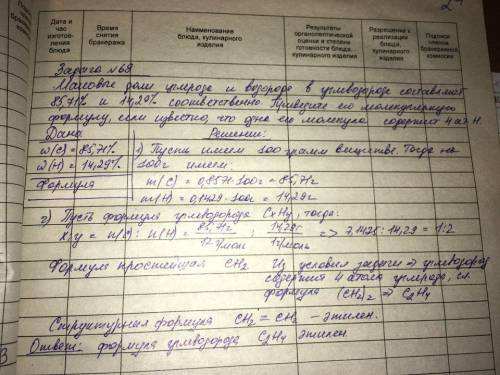 Дата и час изготов-ления блюда
Время снятия бракеража
Наименование блюда, кулинарного изделия
Результаты органолептической оценки и степени готовности блюда, кулинарного изделия
Разрешение к реализации блюда, кулинарного изделия
Подписи членов бракеражной комиссии
Задача №68
Массовые доли углерода и водорода в углеводороде составляют
85,71% и 14,29% соответственно. Приведите его молекулярную
формулу, если известно, что одна его молекула содержит 4 ат. H.
Дано Решение:
ω(C) = 85,71% 1) Пусть имеем 100 грамм вещества. Тогда на
ω(H) = 14,29% 100г имеем:
Формула m(C) = 0,8571·100г = 85,71г
m(H) = 0,1429·100г = 14,29г
2) Пусть формула углеводорода CxHy, тогда:
x:y = n(C) : n(H) = 85,71г / 12г/моль : 14,29г / 1г/моль => 7,1425 : 14,29 = 1:2
Формула простейшая CH2 Из условия задачи => углеводород
содержит 4 атома углерода, сл.
формула (CH2)2 => C2H4
Структурная формула CH2 = CH2 - этилен.
Ответ: формула углеводорода C2H4 этилен.